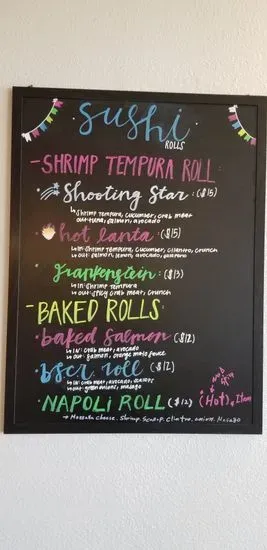 sushi
ROLLS
-SHRIMP TEMPURA ROLL:
Shooting Star: ($15)
↳ In: Shrimp tempura, cucumber, crab meat
out: tuna, salmon, avocado
hot lanta: ($15)
↳ In: Shrimp tempura, cucumber, cilantro, crunch
↳ out: salmon, lemon, avocado, jalapeno
frankenstein: ($13)
↳ In: Shrimp tempura
↳ out: spicy crab meat, crunch
-BAKED ROLLS:
baked salmon ($12)
↳ In: crab meat, avocado
↳ out: salmon, orange masa sauce
bscr roll ($12)
↳ In: crab meat, avocado,
↳ out: green onions, masago
NAPOLI ROLL ($12) (Hot) Item
→ Mozzarella cheese, Shrimp, Scallop, Cilantro, onion, Masago